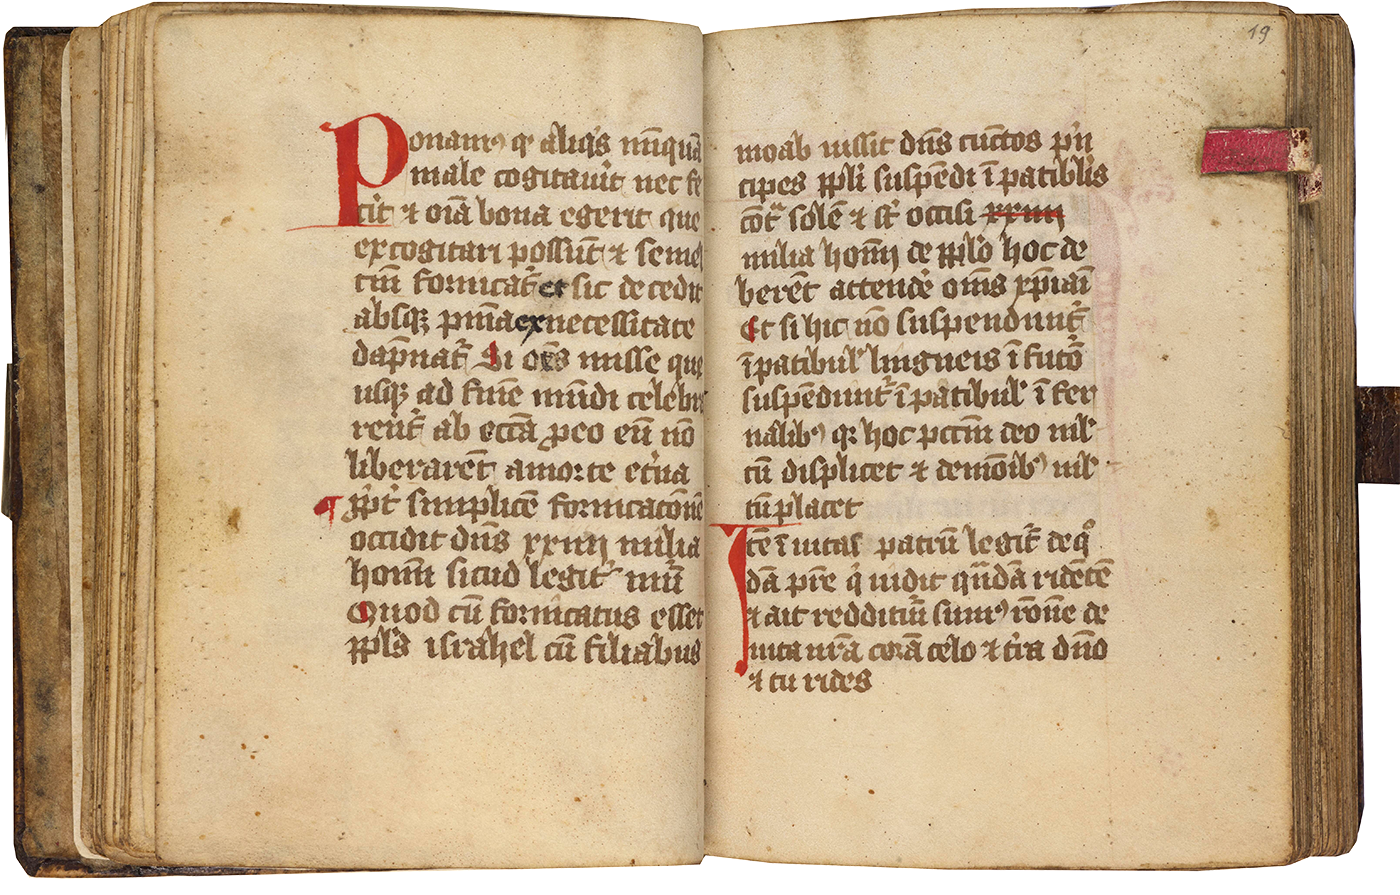 Ponamꝰ qͬ aliqͥs nūquā
male cogitauit nec fe
cit ⁊ oīa bona egerit que
excogitari possūt ⁊ semel
tm̄ fornicat᷑ et sic decedit
absqꝫ pn̄ia ex necessitate
dapnat᷑ Si oēs misse que
usqꝫ ad finē mūdi celebra
rent᷑ ab ecc̄ia ꝓ eo eū nō
liberarēt a morte et̓na
¶ ꝓpt̓ simplicē fornicacōnē
occidit dn̄s xxiiij milia
homī sicud legit᷑ nūi
Quod cū fornicatus esset
ppl̄s israhel cū filiabus
19
moab iussit dn̄s cūctos pͥn
cipes ppl̄i suspēdi ī patiblis
cōtͣ solē ⁊ st̄ occisi xxiiij
milia homīj de ppl̄o hoc de
berēt attendē om̄s xp̄iani
Et si hic nō suspendunt᷑
ī patibul᷑ lingneis ī futōꝛ
suspēdunt᷑ ī patibul᷑ ī fer
nalibꝰ qꝛ hoc pctm̄ deo nil᷑
tm̄ displicet ⁊ demōibꝰ nil᷑
tm̄ placet
Itē ī uitas patrū legit᷑ de qͦ
dā pr̄e qͥ uidit quendā ridētē
⁊ ait reddituri sumꝰ rōnē de
uita nr̄a corā celo ⁊ t̓ra dn̄o
⁊ tu rides